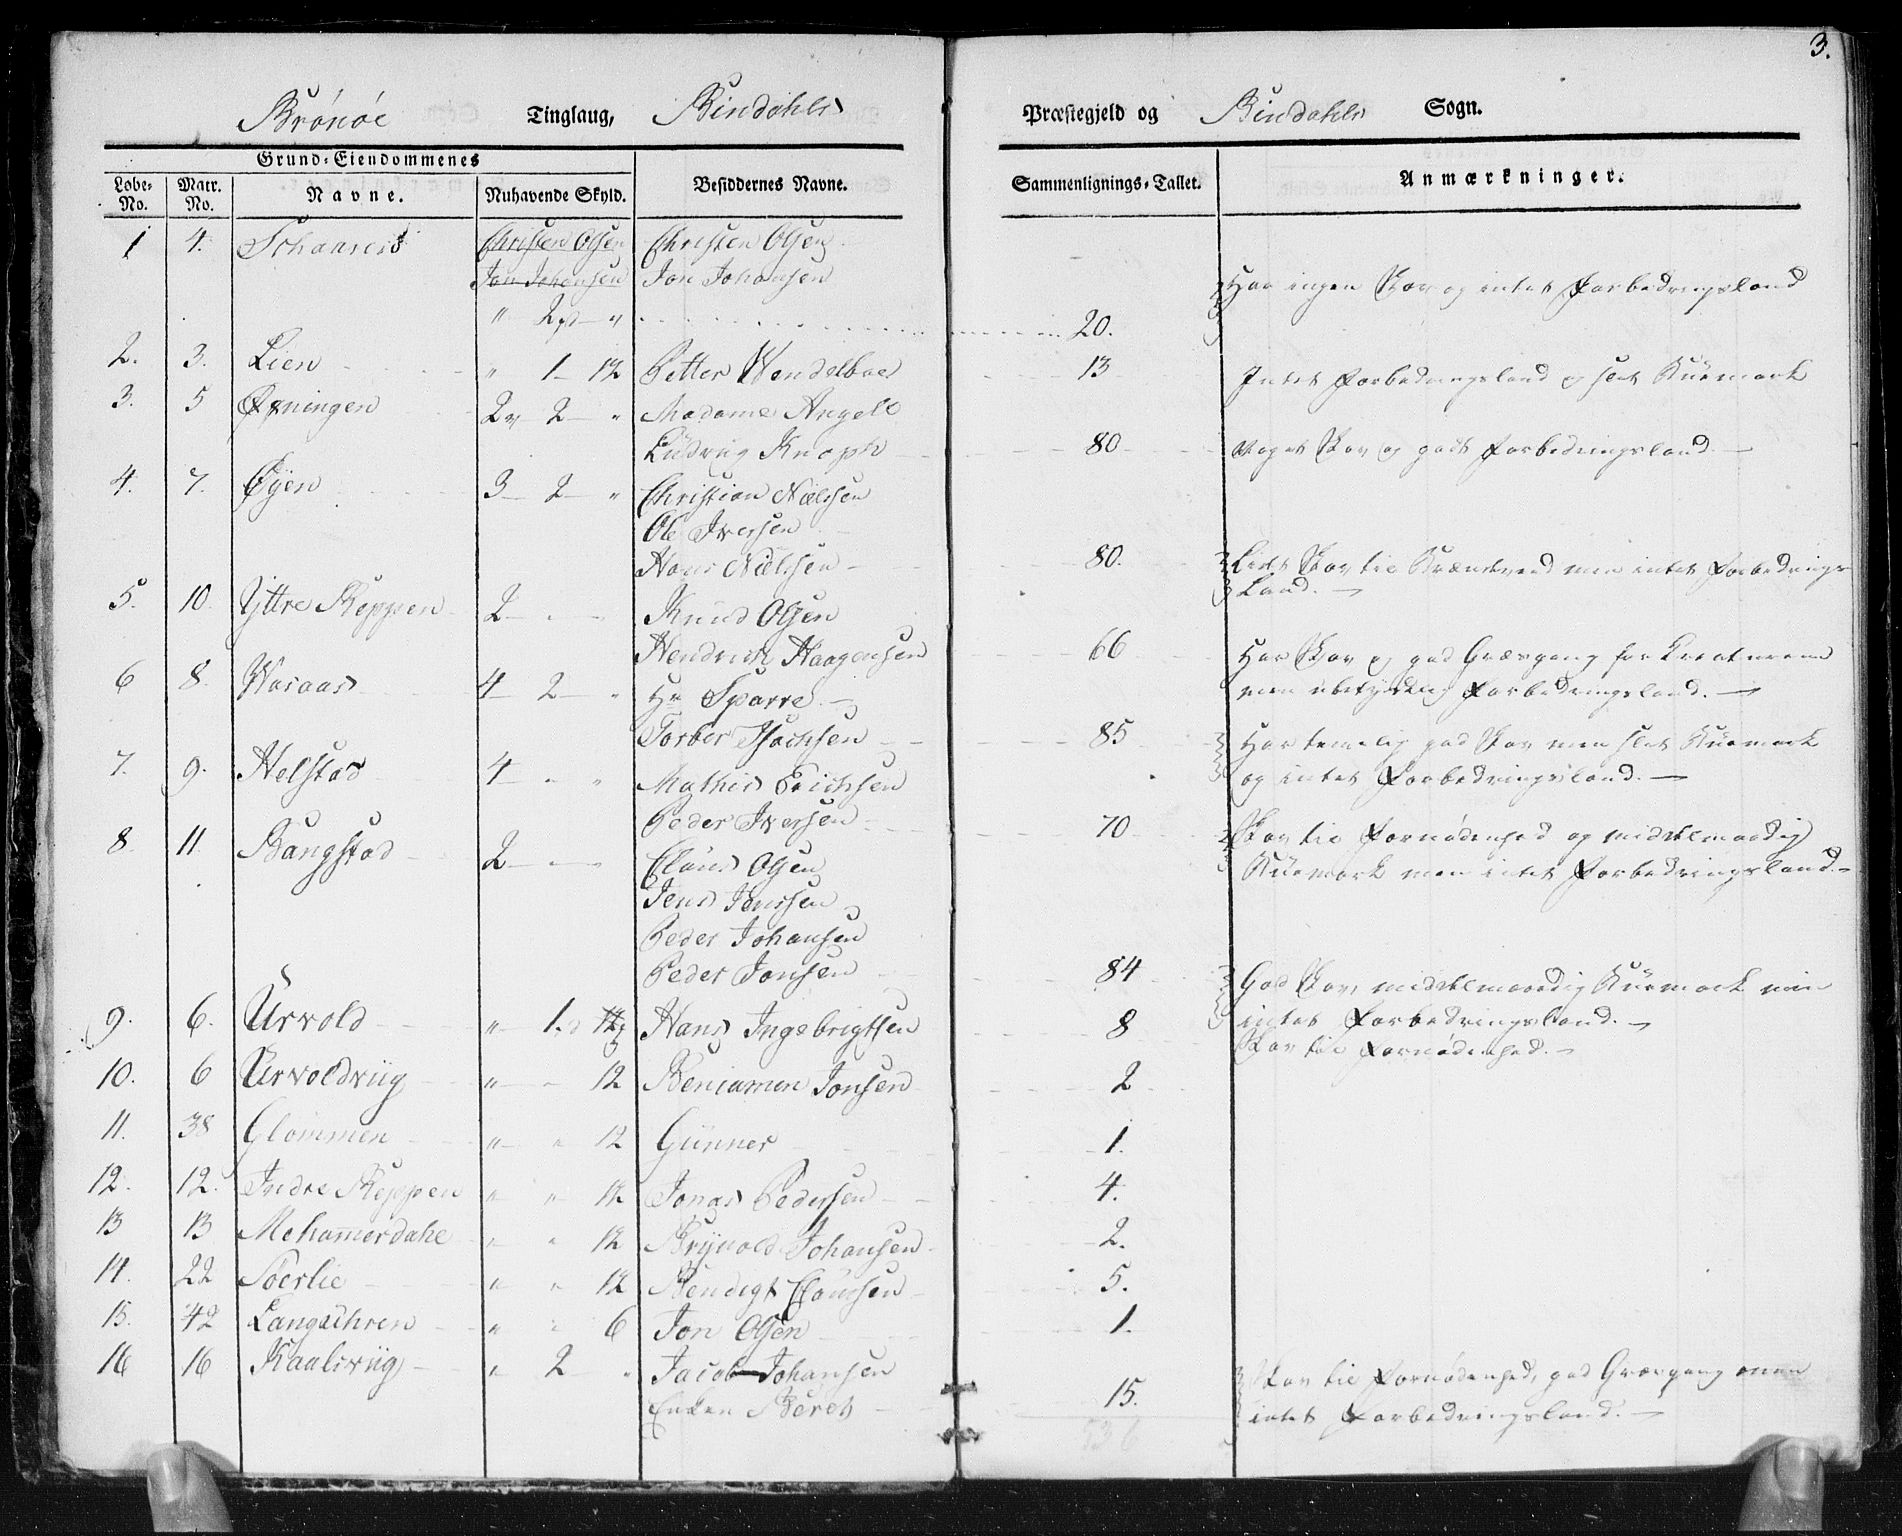 3.
Brønøe Tinglaug, Bindahls Præstegjeld og Bindahls Sogn.
Grund-Eiendommenes
Løbe-No. Matr. No. Navne. Nuhavende Skyld. Besiddernes Navne. Sammenlignings-Tallet. Anmærkninger.
1 4. Christen Olsen Christen Olsen
Jon Johansen Jon Johansen Har ingen Skov og intet Forbedringsland
" 2 " 20.
2. 3. Lien " 1 12 Petter Wendelboe 13 Intet Forbedringsland og slet Kuemark
3. 5 Øpningen 2 2 " Madame Angell
Ludvig Knoph 80 Noget Skov og godt Forbedringsland
4. 7. Øyen 3 2 " Christian Nielssen
Ole Iversen
Hans Nielssen 80. Lidt Skov til Brændeved men intet Forbedrings
Land.
5. 10. Yttre Skoppen 2 Knud Olsen
Hendrich Haagensen 66 Har Skov og god Græsgang for Creaturene
men ubetydelig Forbedringsland.
6 8. Wasaas 4 2 " Hr Sparre
Torber Isachsen 85 Har temelig god Skov men slet Kuemark
og intet Forbedringsland.
7. 9. Helstad 4 " " Mathis Erichsen
Peder Iversen 70 Skov til Fornødenhed og middelmaadig
Kuemark men intet Forbedringsland.
8. 11. Bangstad 2 Claus Olsen
Jens Jenssen
Peder Johansen
Peder Jonsen 84 God Skov, middelmaadig Kuemark men
intet Forbedringsland.
9. 6. Urvold " 1. 12 Hans Ingebrigtsen 8 Skov til Fornødenhed.
10. 6 Urvoldviig " 12 Beniamen Jonsen 2
11. 38 Glommen " " 12 Gunner 1.
12. 12. Indre Skoppen " " 12 Jonas Pedersen 4.
13 13 Mehammerdahl " " 12 Brynold Johansen 2.
14. 22 Soerlie " " 12 Bendigt Claussen 5.
15. 42 " " 6 Jon Olsen 1.
16 16 Kaalsviig " 2 " Jacob Johansen Skov til Fornødenhed, god Græsgang men
Enken Beret 15. intet Forbedringsland.
536